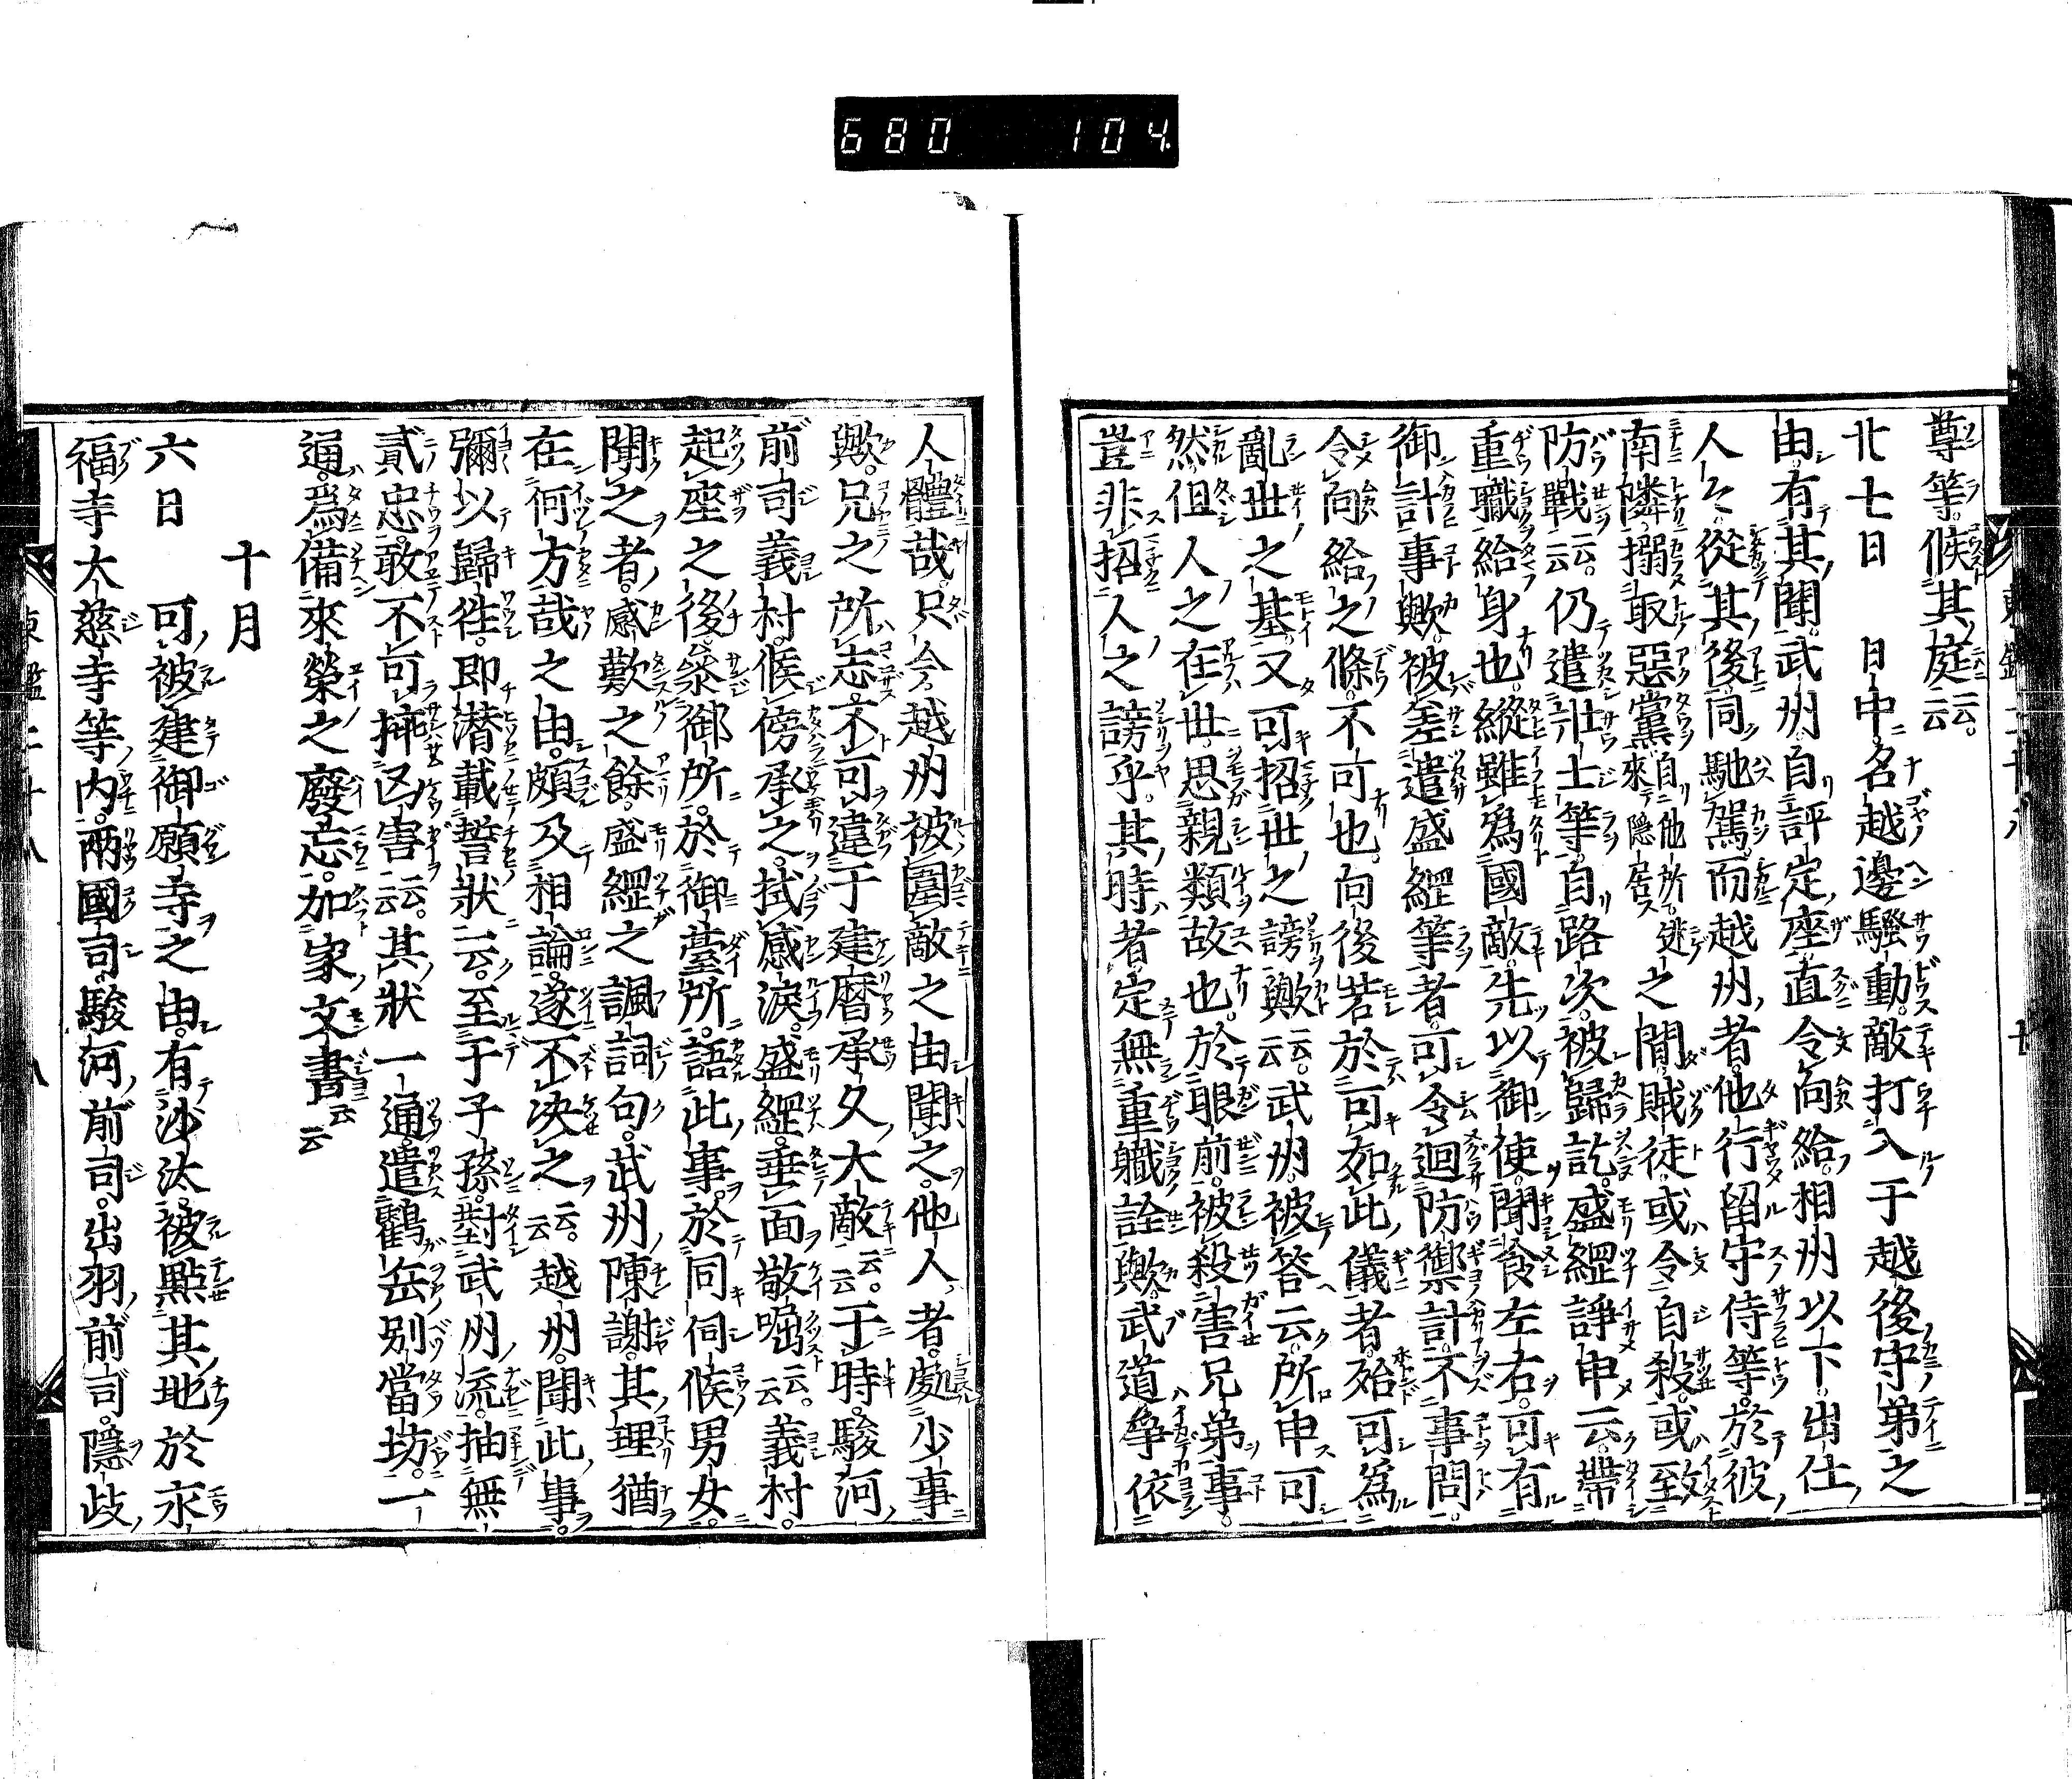 680 104
尊等候其庭云云。
廿七日　日中名越邊騒動。敵打入于越後守第之
由。有其聞。武州自評定座直令向給。相州以下。出仕
人々從其後同馳駕。而越州者他行。留守侍等。於彼
南隣搦取惡黨自他所迯來隱居之間。賊徒或令自殺。或致
防戰云云。仍遣壯士等。自路次被歸訖。盛綱諍申云。帶
重職給身也。縱雖爲國敵。先以御使聞食左右。可有
御計事歟。被差遣盛綱等者。可令廻防禦計。不事問。
令向給之條。不可也。向後若於可如此儀者。殆可爲
亂世之基。又可招世之謗歟云云。武州被答云。所申可
然。但人之在世。思親類故也。於眼前被殺害兄弟事。
豈非招人之謗乎。其時者定無重職詮歟。武道爭依
人體哉。只今越州被圍敵之由聞之。他人者處少事
歟。兄之所志不可違于建暦承久大敵云云。于時駿河
前司義村。候傍承之。拭感涙。盛綱垂面敬啒云云。義村。
起座之後參御所。於御臺所。語此事。於同伺候男女。
聞之者。感歎之餘。盛綱之諷詞句。武州陳謝。其理猶
在何方哉之由。頗及相論。遂不决之云云。越州。聞此事。
彌以歸徃。即潜載誓狀云。至于子孫。對武州流。抽無
貳忠。敢不可挿凶害云云。其狀一通。遣鶴岳別當坊。一
通。爲備來葉之廢忘。加家文書云云
十月
六日　可被建御願寺之由。有沙汰。被點其地於永
福寺大慈寺等内。兩國司。駿河前司。出羽前司。隱岐